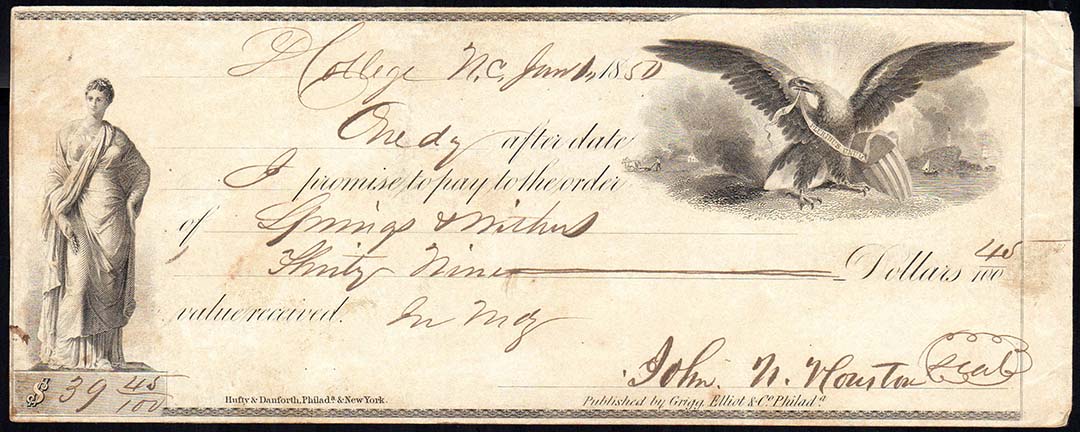 D College N.C. Jan 1, 1850
One dy after date
I promise to pay to the order
of Springs & Withers
Thirty Nine Dollars 45/100
value received. In Mdz
John. N. Houston Seal
$ 39 45/100
E PLURIBUS UNUM
Hufty & Danforth, Philada. & New York.
Published by Grigg, Elliot & Co. Philada.